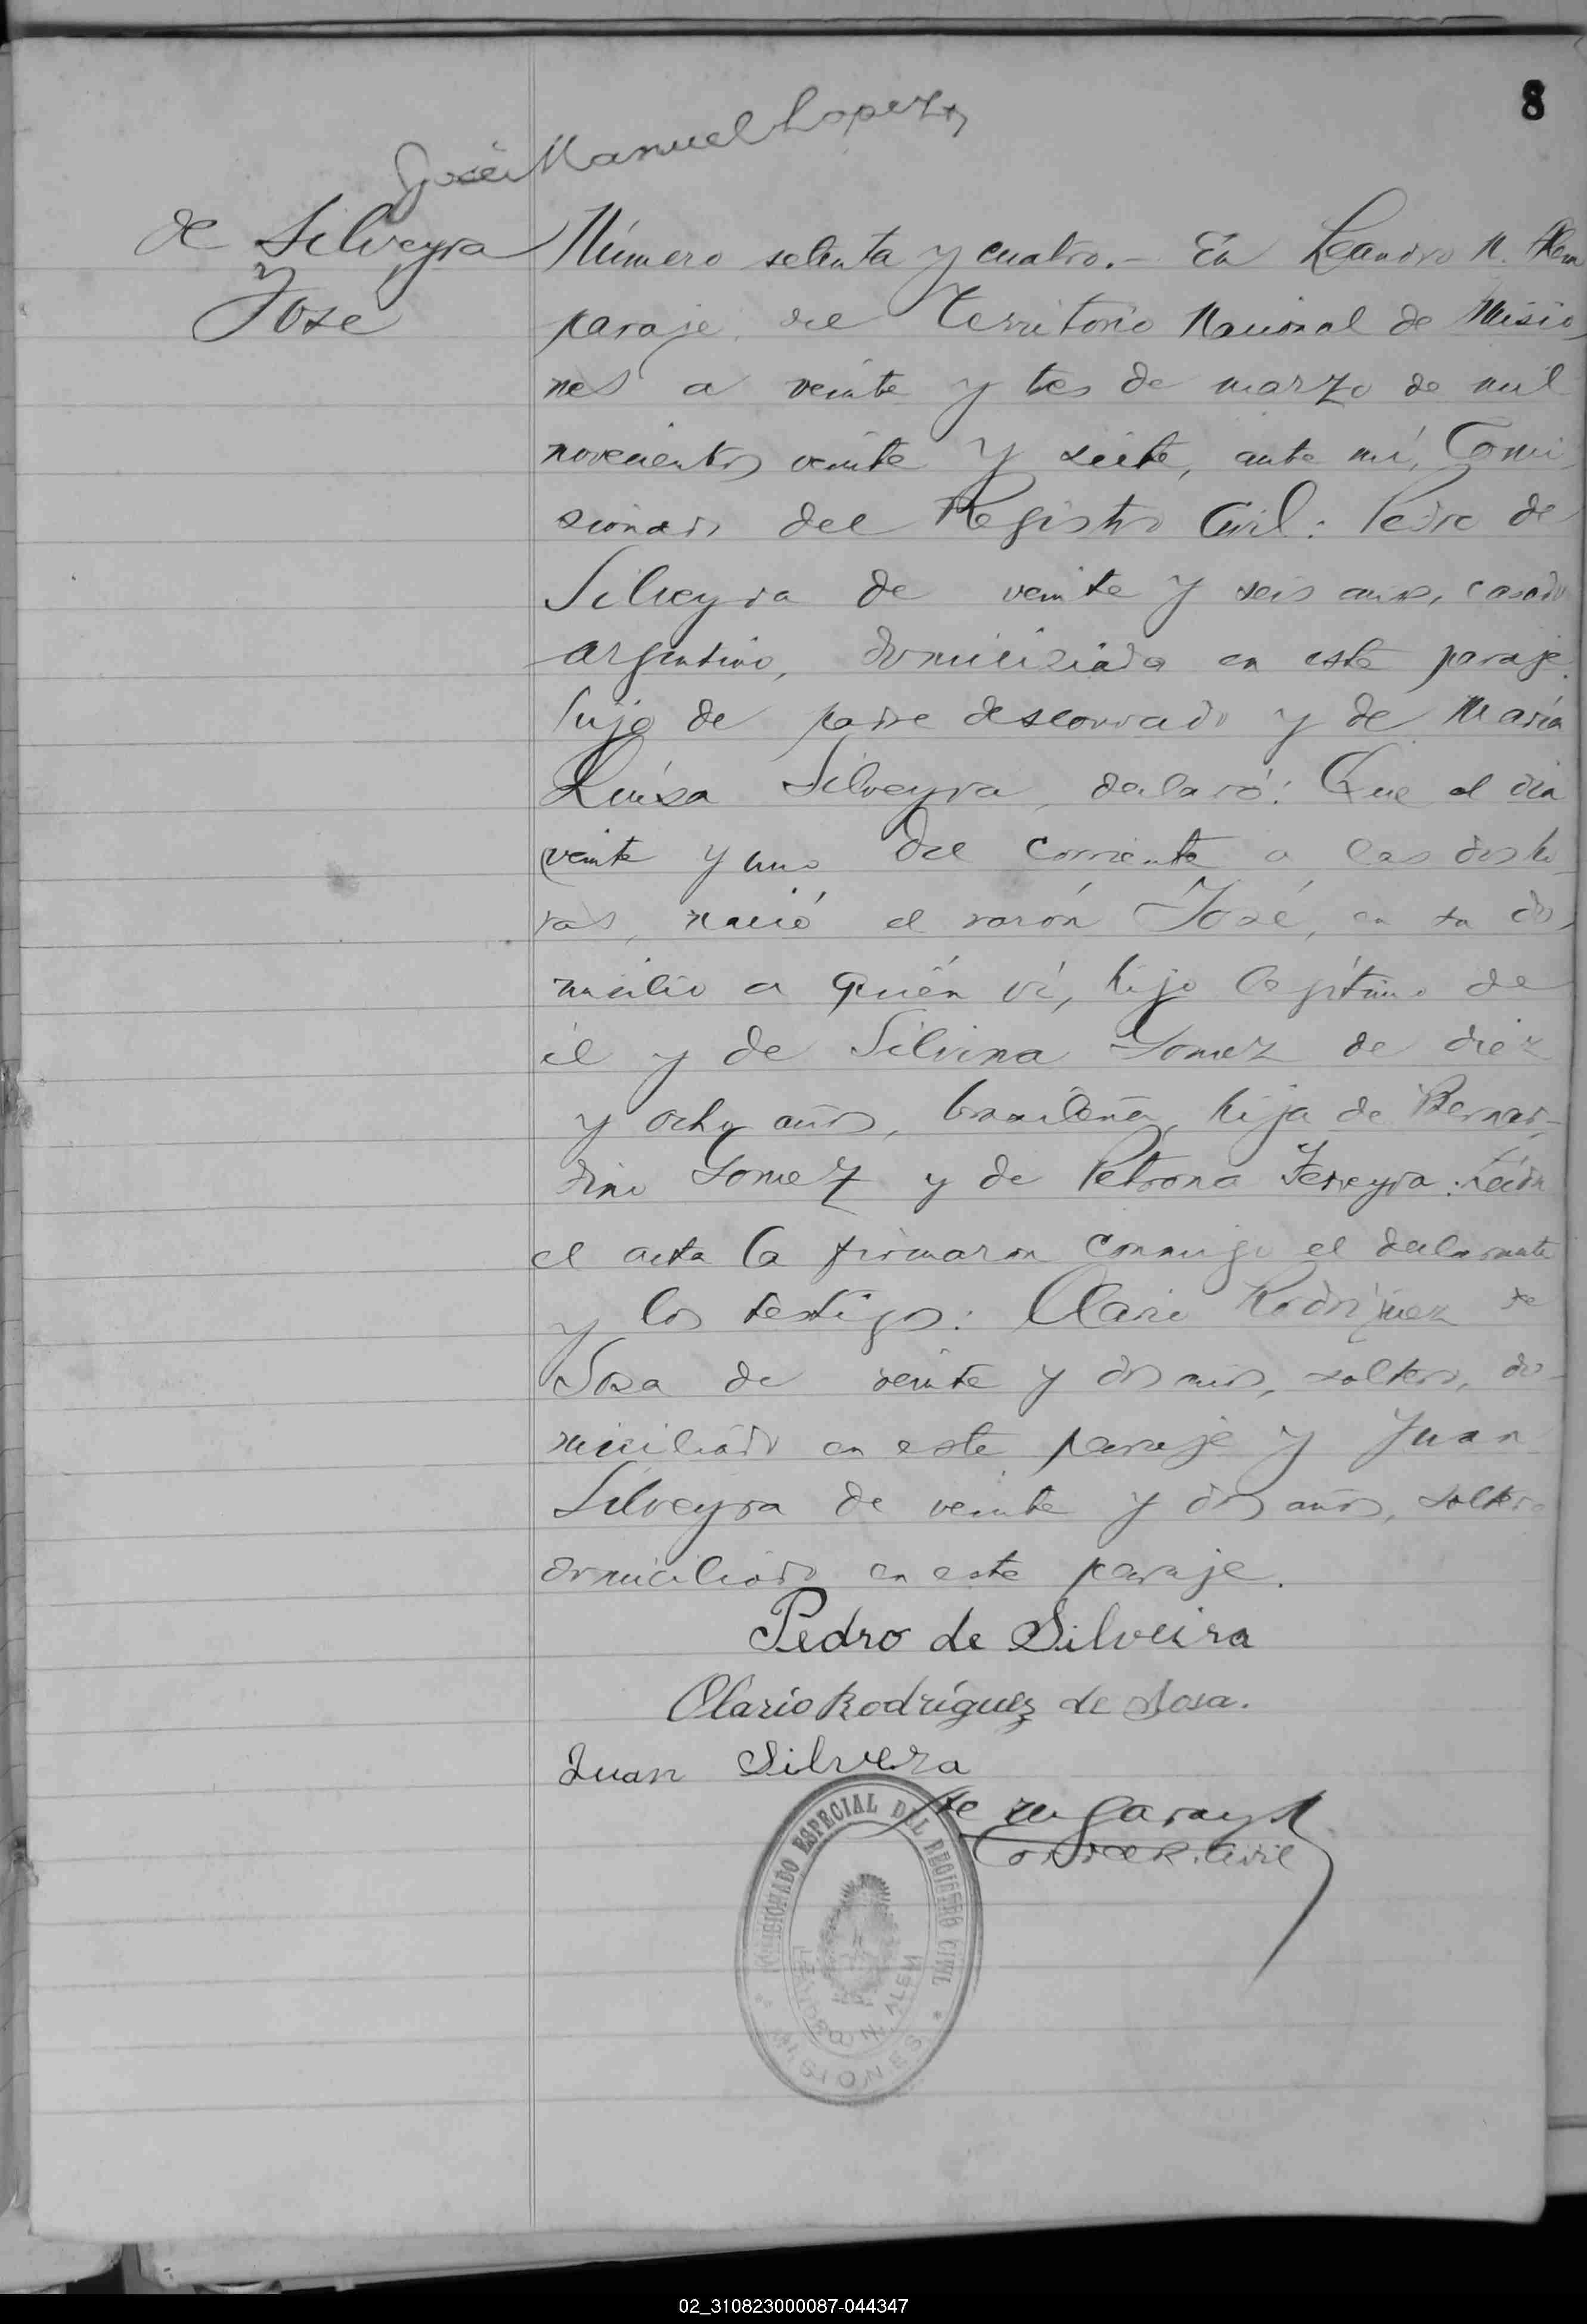 8
José Manuel Lopez
de Silveyra
José
Número setenta y cuatro.- En Leandro N. Alem
paraje del Territorio Nacional de Misio-
nes a veinte y tres de marzo de mil
novecientos veinte y siete, ante mí, Comi-
sionado del Registro Civil: Pedro de
Silveyra de veinte y seis años, casado
argentino, domiciliado en este paraje,
hijo de padre desconocido y de María
Luisa Silveyra, declaró: Que el día
veinte y uno del corriente a las dos ho-
ras, nació el varón José, en su do-
micilio a quién ví, hijo legítimo de
él y de Silvina Gomez de diez
y ocho años, brasileña, hija de Bernar-
dino Gomez y de Petrona Fereyra. Leída
el acta la firmaron conmigo el declarante
y los testigos: Olario Rodríguez de
Sosa de veinte y dos años, soltero, do-
miciliado en este paraje y Juan
Silveyra de veinte y dos años, soltero
domiciliado en este paraje.
Pedro de Silveira
Olario Rodríguez de Sosa.
Juan Silvera
Garay
R. Civil
COMISIONADO ESPECIAL DEL REGISTRO CIVIL
LEANDRO N. ALEM
MISIONES
02_310823000087-044347